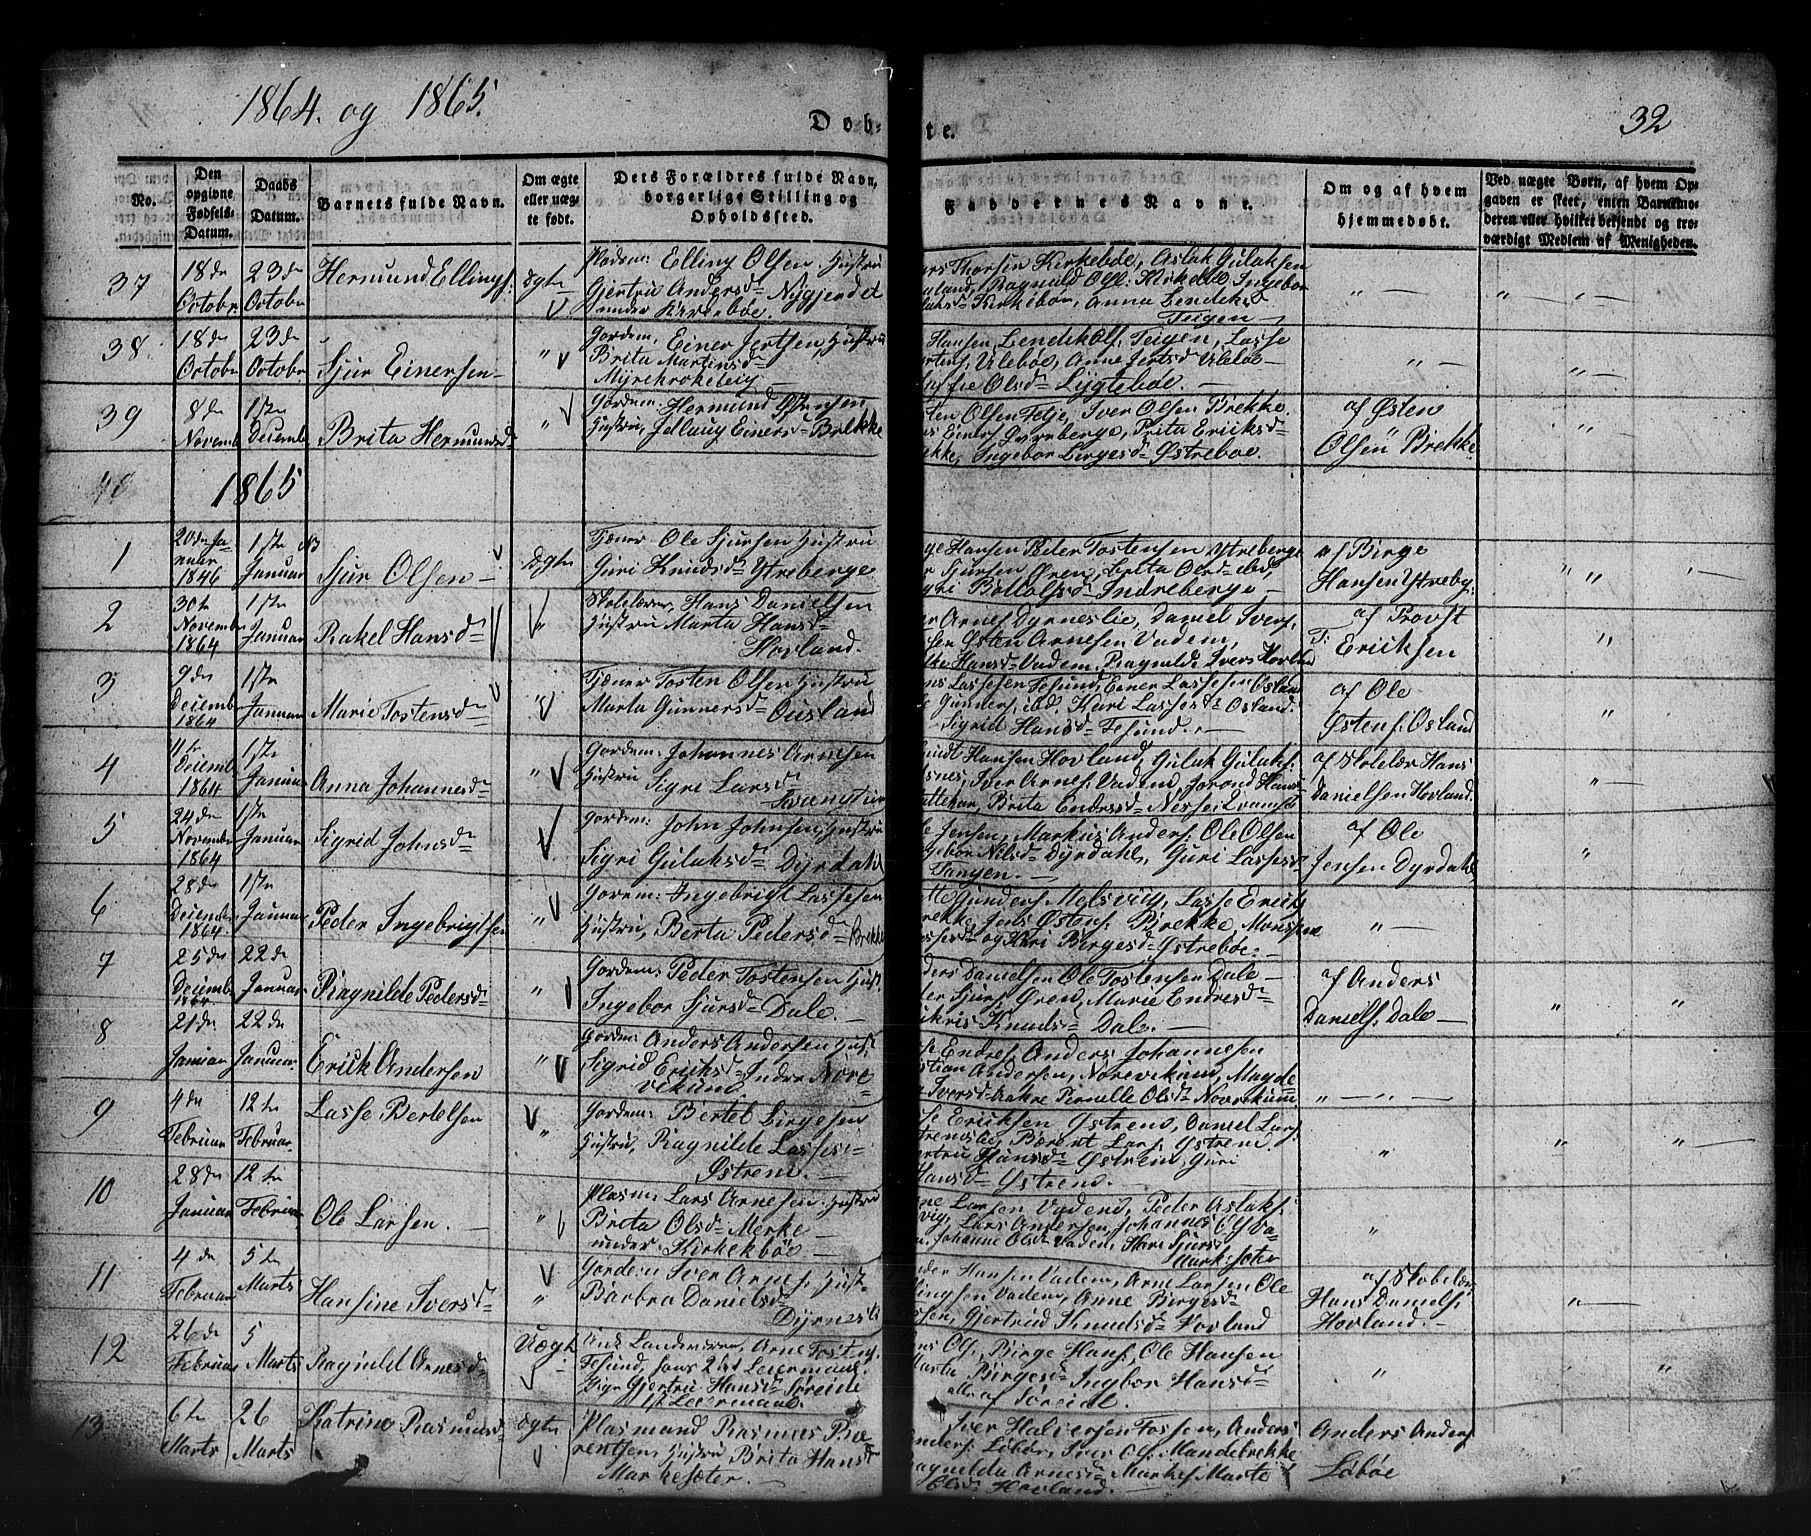 1864. og 1865.
Døb-
te.
32
No.
Den opgivne Fødsels-Datum.
Daabs Datum.
Barnets fulde Navn.
Om ægte eller uæg-te født.
Dets Forældres fulde Navn, borgerlige Stilling og Opholdssted.
Faddernes Navne.
Om og af hvem hjemmedøbt.
Ved uægte Børn, af hvem Op-gaven er skeet, enten Barnemo-deren eller hvilket bekjendt og tro-værdigt Medlem af Menigheden.
37 18de Octobr. 23de Octobr Hermund Ellings: ægte
Pladsm: Elling Olsen Hustru
Gjertru Andersd Nygjerdet
under Kirkebøe.
Thorsen Kirkebøe, Aslak Gulaksen
Ragnald Olss: Kirkebøe Ingebor
Kirkebøe, Anna Lendiksd
Teigen
38 18de Octobr 23de Octobr Sjur Einersen "
Gordm. Einer Jertsen Hustru
Brita Martinsd
Myrekrokeleig
Hansen, Lendik Ols, Teigen, Lasse
Ulebøe, Anne Jertsd Ulebøe
Olsd Lygtebøe.
" —
39 8de Novembr 1ste Decembr Brita Hermunsd "
Gordm: Hermund Østensen
Hustru, Jellaug Einersd Brekke
Olsen Tetje, Iver Olsen Brekke
Brita Eriksd
Ingebor Birgesd Østrebøe.
af Østen
Olsen Brekke
40 1865
1 20de Ja-nuar 1846 1ste Januar Sjur Olsen ægte
Tjæner Ole Sjursen Hustru
Guri Knudsd Ytreberge
Hansen Peder Tostensen Ytreberge
Sjursen Øren, Brita Olsd ibd,
Bottolfsd Indreberge
af Birge
Hansen Ytrebg:
2 30te Novembr 1864 1ste Januar Rakel Hansd "
Skolelærer, Hans Danielsen
Hustru Marta Hansd
Hovland.
Arnes Dyrneslie, Daniel Ivers:
Østen Arnesen Vadem,
Hansd Vadem, Ragnilde Ivers Hovland
af Provst
T: Ericksen
3 9de Decembr 1864 1ste Januar Marie Tostensd "
Tjæner Tosten Olsen Hustru
Marta Gunnersd Ousland
Lassesen Tesund, Einer Lassesen Osland
Gunders: ibd. Kari Lassesd Osland.
Sigrid Hansd Tesund.
af Ole
Østens: Osland
4 11te Decembr 1864 1ste Januar Anna Johannesd "
Gordem: Johannes Arnesen
Hustru Sigri Larsd
Hansen Hovland, Gulak Gulaks:
Iver Arnes: Vadem, Jorond Hans
Brita Endresd Nesse:
af Skolelær Hans
Danielsen Hovland.
5 24de Novembr 1864 1ste Januar Sigrid Johnsd
Gordem: John Johnsen, Hustru
Sigri Gulaksd Dyrdahl
Jensen, Markus Anders: Ole Olsen
Nilsd Dyrdahl, Guri Lassesd
Tangen.
af Ole
Jensen Dyrdahl
6 28de Decembr 1864 1ste Januar Peder Ingebrigtsen "
Gorem: Ingebrigt Lassesen
Hustru, Berta Pedersd Brekke
Gunders Melsviig, Lasse Erick
Jens Østens Brekke, Mons
og Kari Birgesd Østrebøe.
7 25de Decembr 1864 22de Januar Ragnilde Pedersd "
Gordem: Peder Tostensen Hust.
Ingebor Sjursd Dale.
Danielsen Ole Tostensen Dale
Sjurs Øren, Marie Endresd
Knudsd Dale.
af Anders
Daniels. Dale
8 21de Januar 22de Januar Erick Andersen "
Gordm: Anders Andersen Hust.
Sigrid Ericksd Indre Nore
vikum
Endres, Anders Johannesen
Andersen, Norevikum, Magde
Iversd Aakre Pernille Olsd Norevikum
9 4de Februar 12te Februar. Lasse Bertelsen "
Gordem: Bertel Birgesen
Hustru, Ragnilde Lasses
Østrem.
Ericksen Østrem, Daniel Lars:
Berent Lars: Østrem
Hansd Østrem, Guri
Hansd Østrem.
10 28de Januar 12te Februar Ole Larsen. "
Plasm: Lars Arnesen Hustru
Brita Olsd Merke
under Kirkebøe
Larsen Vadem, Peder Aslaks:
Lars Andersen, Johannes
Johanne Olsd Vadem, Kari Sjursd
Markesæter
11 4de Februar 5te Marts Hansine Iversd "
Gordem Iver Arnes: Hust
Barbra Danielsd
Dyrnesli
Hansen Vadem, Arne Larsen Ole
Vadem, Anne Birgesd
Gjertrud Knudsd Hovland
af Skolelær
Hans Daniels:
Hovland.
12 26de Februar 5 Marts Ragnild Arnesd Uægte
Arne Tostens
Tesund, hans 2det Leiermaal
Pige Gjertru Hansd Søreide
1st Leiermaal.
Ols, Birge Hans, Ole Hansen
Marta Birgesd Ingbor Hansd
alle af Søreide.
13 6te Marts 26 Marts Katrine Rasmusd ægte
Plasmand Rasmus Bæ
rentsen Hustru Brita Hansd
Markesæter.
Iver Halversen Anders
Anders: Løbøe, Iver Ols: Mandebrekke
Ragnilda Arnesd Markes Marte
Olsd Hovland.
Anders Anders
Løbøe